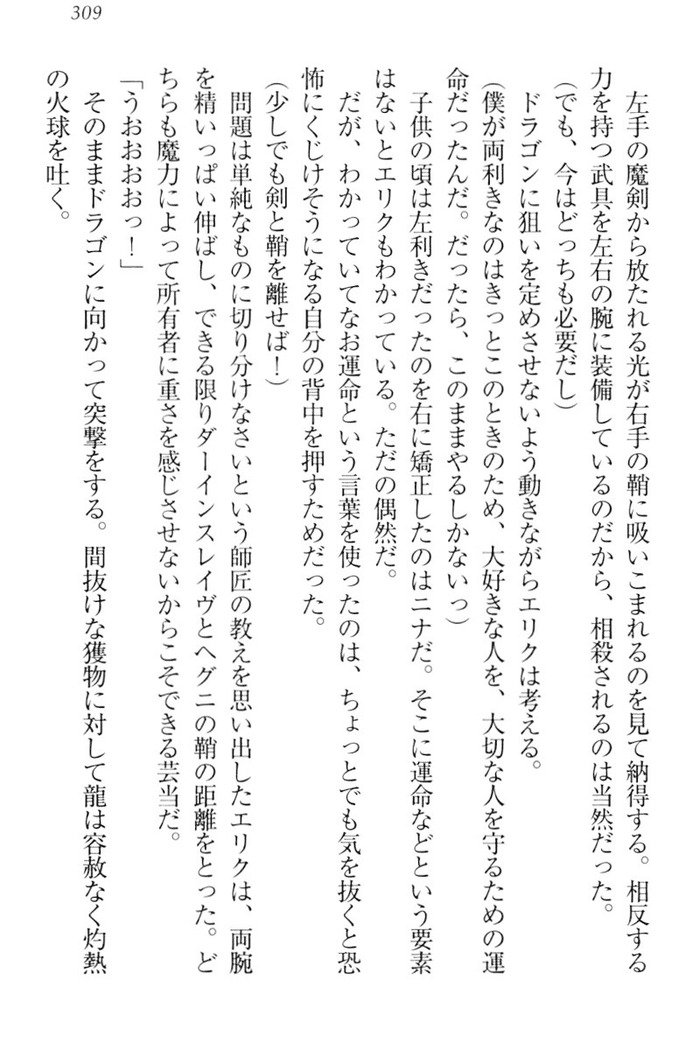 309
左手の魔剣から放たれる光が右手の鞘に吸いこまれるのを見て納得する。相反する
力を持つ武具を左右の腕に装備しているのだから、相殺されるのは当然だった。
(でも、今はどっちも必要だし)
ドラゴンに狙いを定めさせないよう動きながらエリクは考える。
(僕が両利きなのはきっとこのときのため、大好きな人を、大切な人を守るための運
命だったんだ。だったら、このままやるしかないっ)
子供の頃は左利きだったのを右に矯正したのはニナだ。そこに運命などという要素
はないとエリクもわかっている。ただの偶然だ。
だが、わかっていてなお運命という言葉を使ったのは、ちょっとでも気を抜くと恐
怖にくじけそうになる自分の背中を押すためだった。
(少しでも剣と鞘を離せば!)
問題は単純なものに切り分けなさいという師匠の教えを思い出したエリクは、両腕
を精いっぱい伸ばし、できる限りダーインスレイヴとヘグニの鞘の距離をとった。ど
ちらも魔力によって所有者に重さを感じさせないからこそできる芸当だ。
「うおおおおっ!」
そのままドラゴンに向かって突撃をする。間抜けな獲物に対して龍は容赦なく灼熱
の火球を吐く。